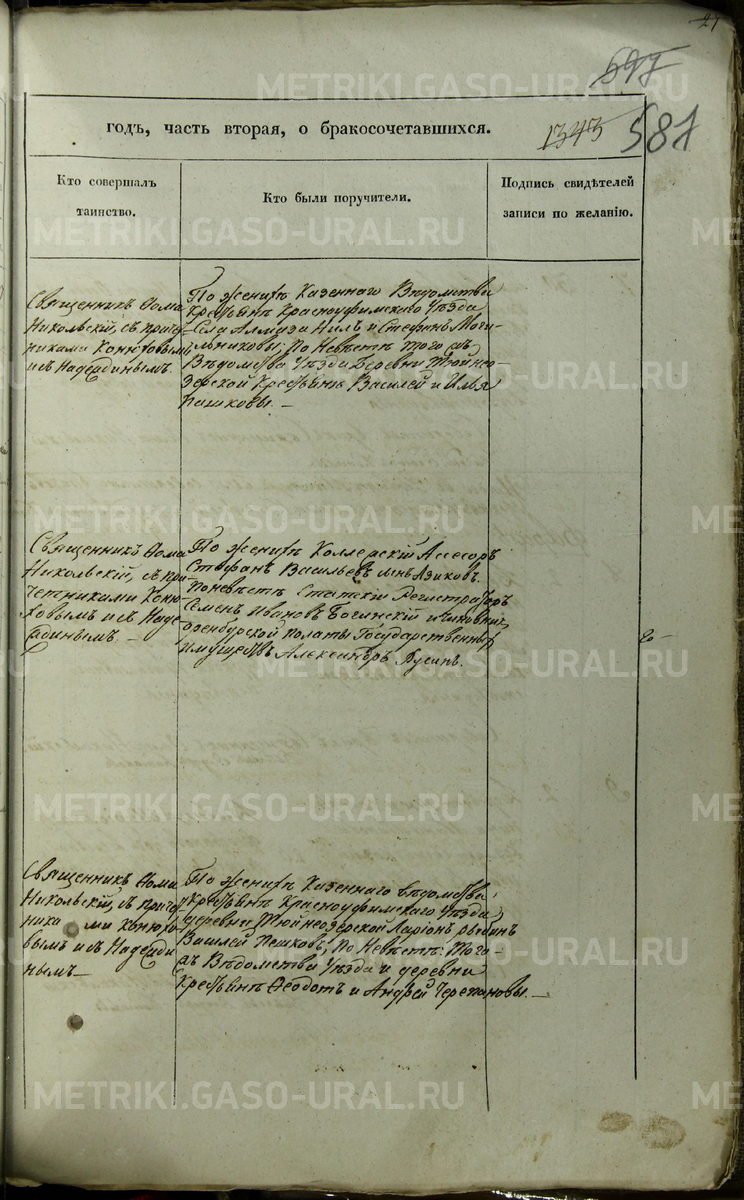 21
597
587
1343
годъ, часть вторая, о бракосочетавшихся.
Кто совершалъ
таинство.
Кто были поручители.
Подпись свидѣтелей
записи по желанію.
Священникъ Ѳома
Никольскій, съ приче
никами Конюховымъ
и съ Надеждинымъ.
По женихѣ Казеннаго Вѣдомства
Крестьянѣ Красноуфимскаго Уѣзда
Села Алмаза Нилъ и Стефанъ Моги
льниковы; По Невѣстѣ того жъ
Вѣдомства Уѣзда Деревни Тюйнео
зерской Крестьянѣ Василей и Илья
Пашковы. —
Священникъ Ѳома
Никольскій, съ при
четниками Коню
ховымъ и съ Наде
ждинымъ. —
По женихѣ Коллежскій Ассесоръ
Стефанъ Васильевъ сынъ Азиковъ.
По невѣстѣ Статскій Регистраторъ
Семенъ Ивановъ Богинскій и Чиновникъ
Оренбургской Палаты Государственныхъ
Имуществъ Александръ
Священникъ Ѳома
Никольскій, съ приче
тника ми Конюхо
вымъ и съ Надежди
нымъ —
По женихѣ Казеннаго вѣдомства
Крестьянѣ Красноуфимскаго Уѣзда
деревни Тюйнеозерской Ларіонъ
Василей Пешковъ; По Невѣстѣ: Того
жъ Вѣдомства Уѣзда и деревни
Крестьянѣ Ѳеодотъ и Андрей Черепановы. —
METRIKI.GASO-URAL.RU